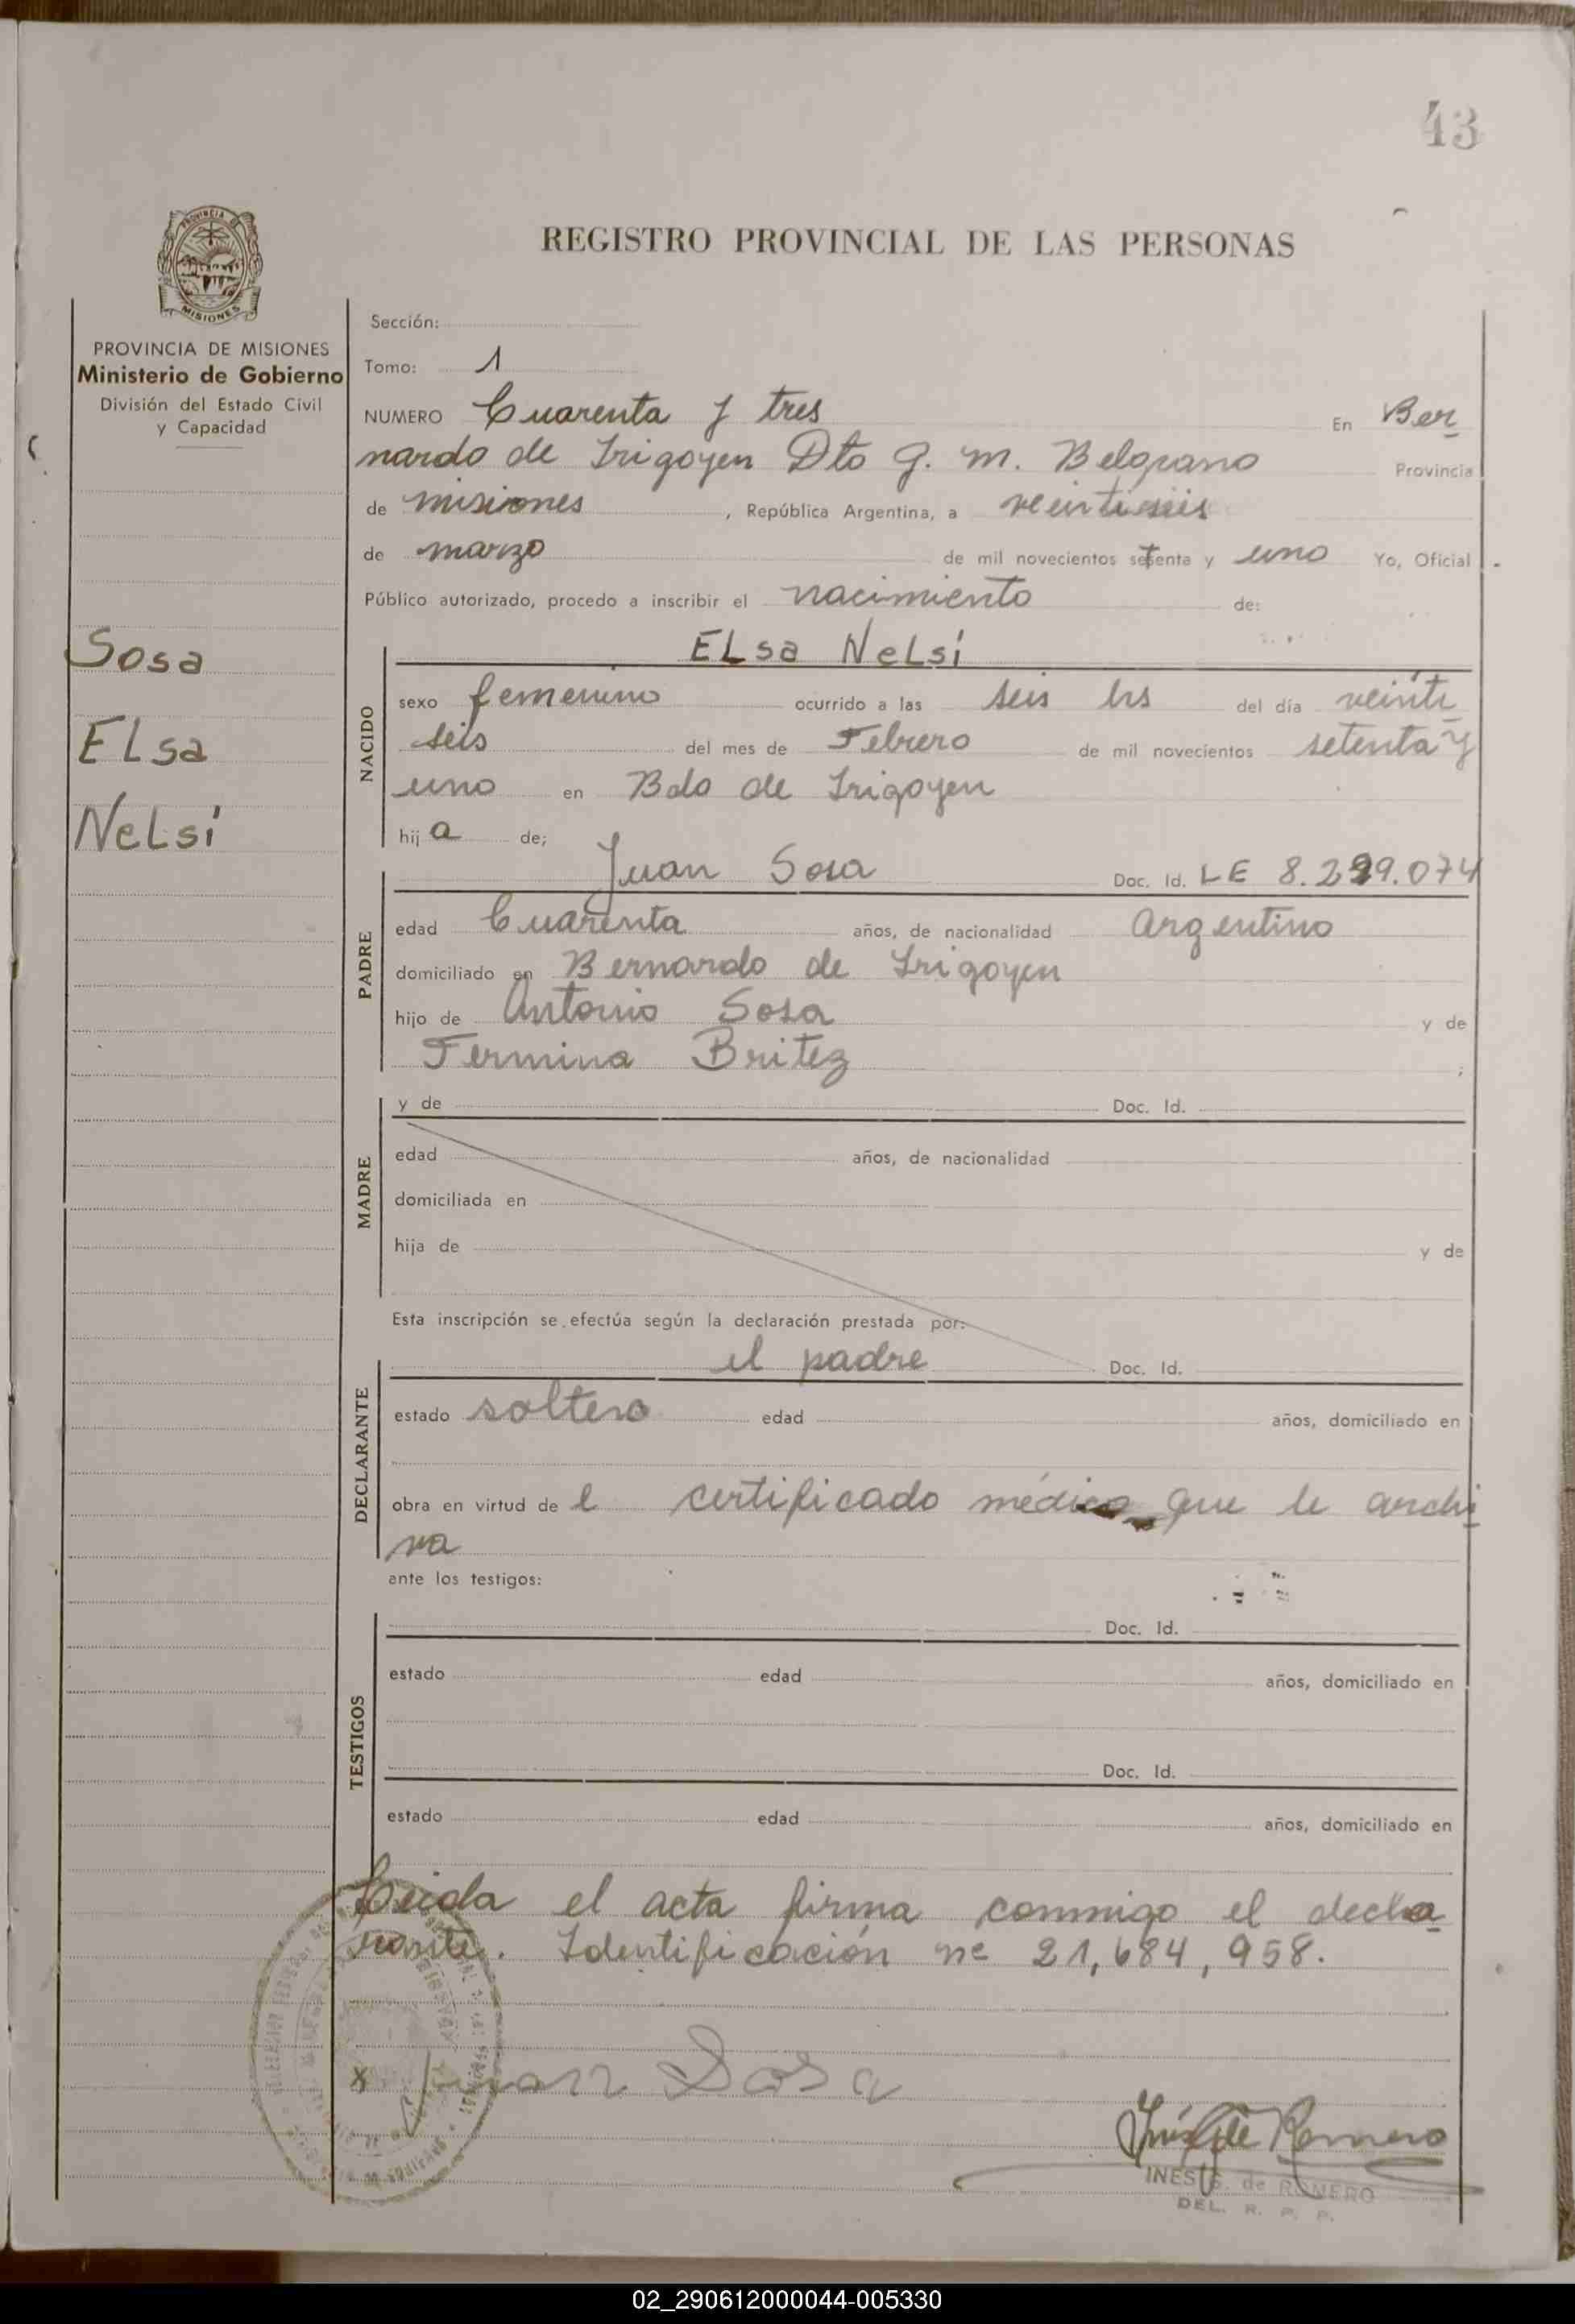 43
REGISTRO PROVINCIAL DE LAS PERSONAS
PROVINCIA DE
MISIONES
PROVINCIA DE MISIONES
Ministerio de Gobierno
División del Estado Civil
y Capacidad
Sosa
ELsa
NeLsi
Sección:
Tomo: 1
NUMERO Cuarenta y tres En Ber
nardo de Irigoyen Dto G. M. Belgrano Provincia
de misiones , República Argentina, a veintiseis
de marzo de mil novecientos setenta y uno Yo, Oficial
Público autorizado, procedo a inscribir el nacimiento de:
ELsa NeLsi
NACIDO
sexo femenino ocurrido a las seis hs del día veinti
seis del mes de Febrero de mil novecientos setenta y
uno en Bdo de Irigoyen
hij a de;
PADRE
Juan Sosa Doc. Id. LE 8.299.074
edad Cuarenta años, de nacionalidad Argentino
domiciliado en Bernardo de Irigoyen
hijo de Antonio Sosa y de
Fermina Britez ;
MADRE
y de Doc. Id.
edad años, de nacionalidad
domiciliada en
hija de y de
Esta inscripción se efectúa según la declaración prestada por:
DECLARANTE
el padre Doc. Id.
estado soltero edad años, domiciliado en
obra en virtud de l certificado médico que se archi
va
ante los testigos:
TESTIGOS
Doc. Id.
estado edad años, domiciliado en
Doc. Id.
estado edad años, domiciliado en
Leida el acta firma conmigo el decla
rante. Identificación nº 21,684,958.
x Juan Sosa
Inés G de Romero
INES G. de ROMERO
DEL. R. P. P.
02_290612000044-005330